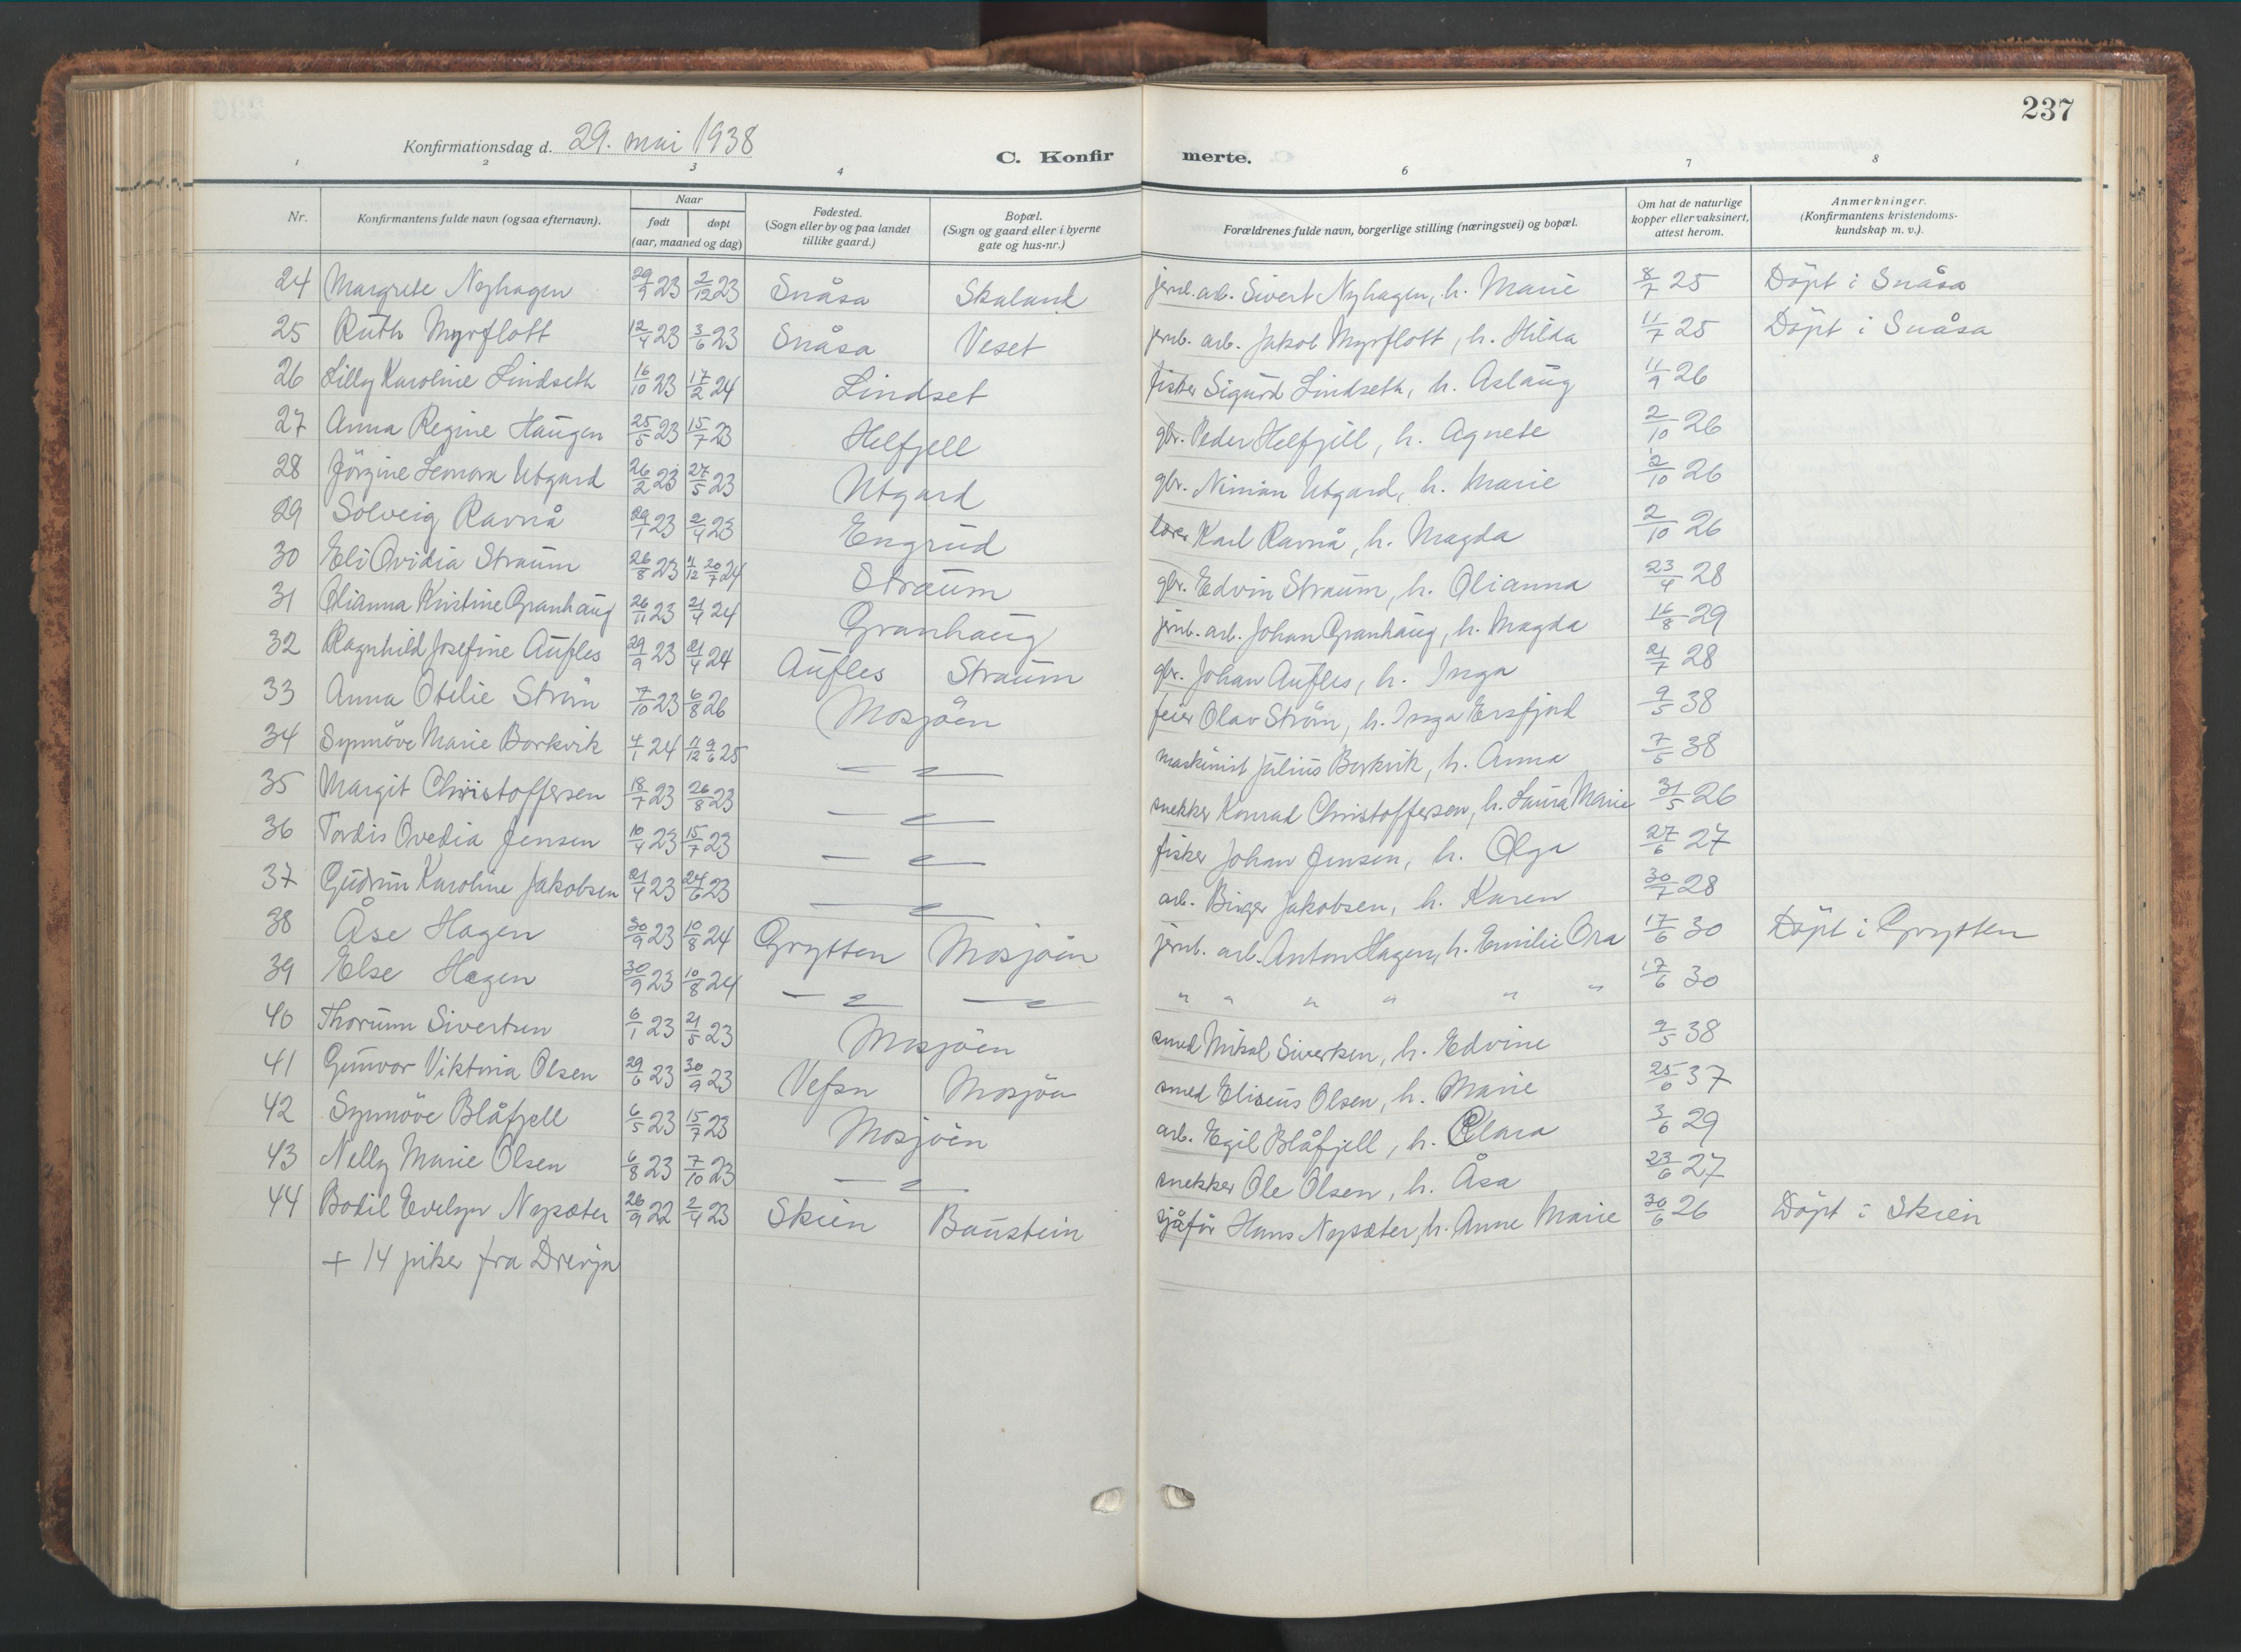 237
Konfirmationsdag d. 29. mai 1938
C. Konfir merte.
1 2 3 4 6 7 8
Nr. Konfirmantens fulde navn (ogsaa efternavn). Naar født døpt (aar, maaned og dag) Fødested. (Sogn eller by og paa landet tillike gaard.) Bopæl. (Sogn og gaard eller i byerne gate og hus-nr.) Forældrenes fulde navn, borgerlige stilling (næringsvei) og bopæl. Om hat de naturlige kopper eller vaksinert, attest herom. Anmerkninger. (Konfirmantens kristendoms-kundskap m. v.).
24 Margrete Nyhagen 29/9 23 2/12 23 Snåsa Skaland jernb. arb. Sivert Nyhagen, h. Marie 8/7 25 Döpt i Snåsa
25 Ruth Myrflott 12/4 23 3/6 23 Snåsa Veset jernb. arb. Jakob Myrflott, h. Hilda 11/7 25 Döpt i Snåsa
26 Lilly Karoline Lindseth 16/10 23 17/2 24 Lindset fisker Sigurd Lindseth, h. Aslaug 11/9 26
27 Anna Regine Haugen 25/5 23 15/7 23 Helfjell gbr. Peder Helfjell, h. Agnete 2/10 26
28 Jörgine Leonora Utgard 26/2 23 27/5 23 Utgard gbr. Nimian Utgard, h. Marie 2/10 26
29 Solveig Ravnå 29/1 23 2/4 23 Engrud lærer Karl Ravnå, h. Magda 2/10 26
30 Eli Ovidia Straum 26/8 23 4/12 20/7 24 Straum gbr. Edvin Straum, h. Olianna 23/4 28
31 Olianna Kristine Granhaug 26/11 23 21/4 24 Granhaug jernb. arb. Johan Granhaug, h. Magda 16/8 29
32 Ragnhild Josefine Aufles 29/9 23 21/4 24 Aufles Straum gbr. Johan Aufles, h. Inga 21/7 28
33 Anna Otelie Ström 7/10 23 6/8 26 Mosjöen feier Olav Ström, h. Inga Ersfjord 9/5 38
34 Synnöve Marie Borkvik 4/1 24 11/12 9/6 25 — " — maskinist Julius Borkvik, h. Anna 7/5 38
35 Margit Christoffersen 18/7 23 26/8 23 — " — snekker Konrad Christoffersen, h. Laura Marie 31/5 26
36 Tordis Ovedia Jensen 10/4 23 15/7 23 — " — fisker Johan Jensen, h. Olga 27/6 27
37 Gudrun Karoline Jakobsen 21/4 23 24/6 23 — " — arb. Birger Jakobsen, h. Karen 30/7 28
38 Åse Hagen 30/9 23 10/8 24 Grytten Mosjöen jernb. arb. Anton Hagen, h. Emilie Ora 17/6 30 Döpt i Grytten
39 Else Hagen 30/9 23 10/8 24 — " — " " " " " " " 17/6 30
40 Thorunn Sivertsen 6/1 23 21/5 23 Mosjöen smed Mikal Sivertsen, h. Edvine 9/5 38
41 Gunvor Viktoria Olsen 29/6 23 30/9 23 Vefsn Mosjöen smed Eliseus Olsen, h. Marie 25/6 37
42 Synnöve Blåfjell 6/5 23 15/7 23 Mosjöen arb. Egil Blåfjell, h. Clara 3/6 29
43 Nelly Marie Olsen 6/8 23 7/10 23 — " — snekker Ole Olsen, h. Åsa 23/6 27
44 Bodil Evelyn Nysæter 26/9 22 2/4 23 Skien Baustein sjåför Hans Nysæter, h. Anne Marie 30/6 26 Döpt i Skien
+ 14 piker fra Drevja